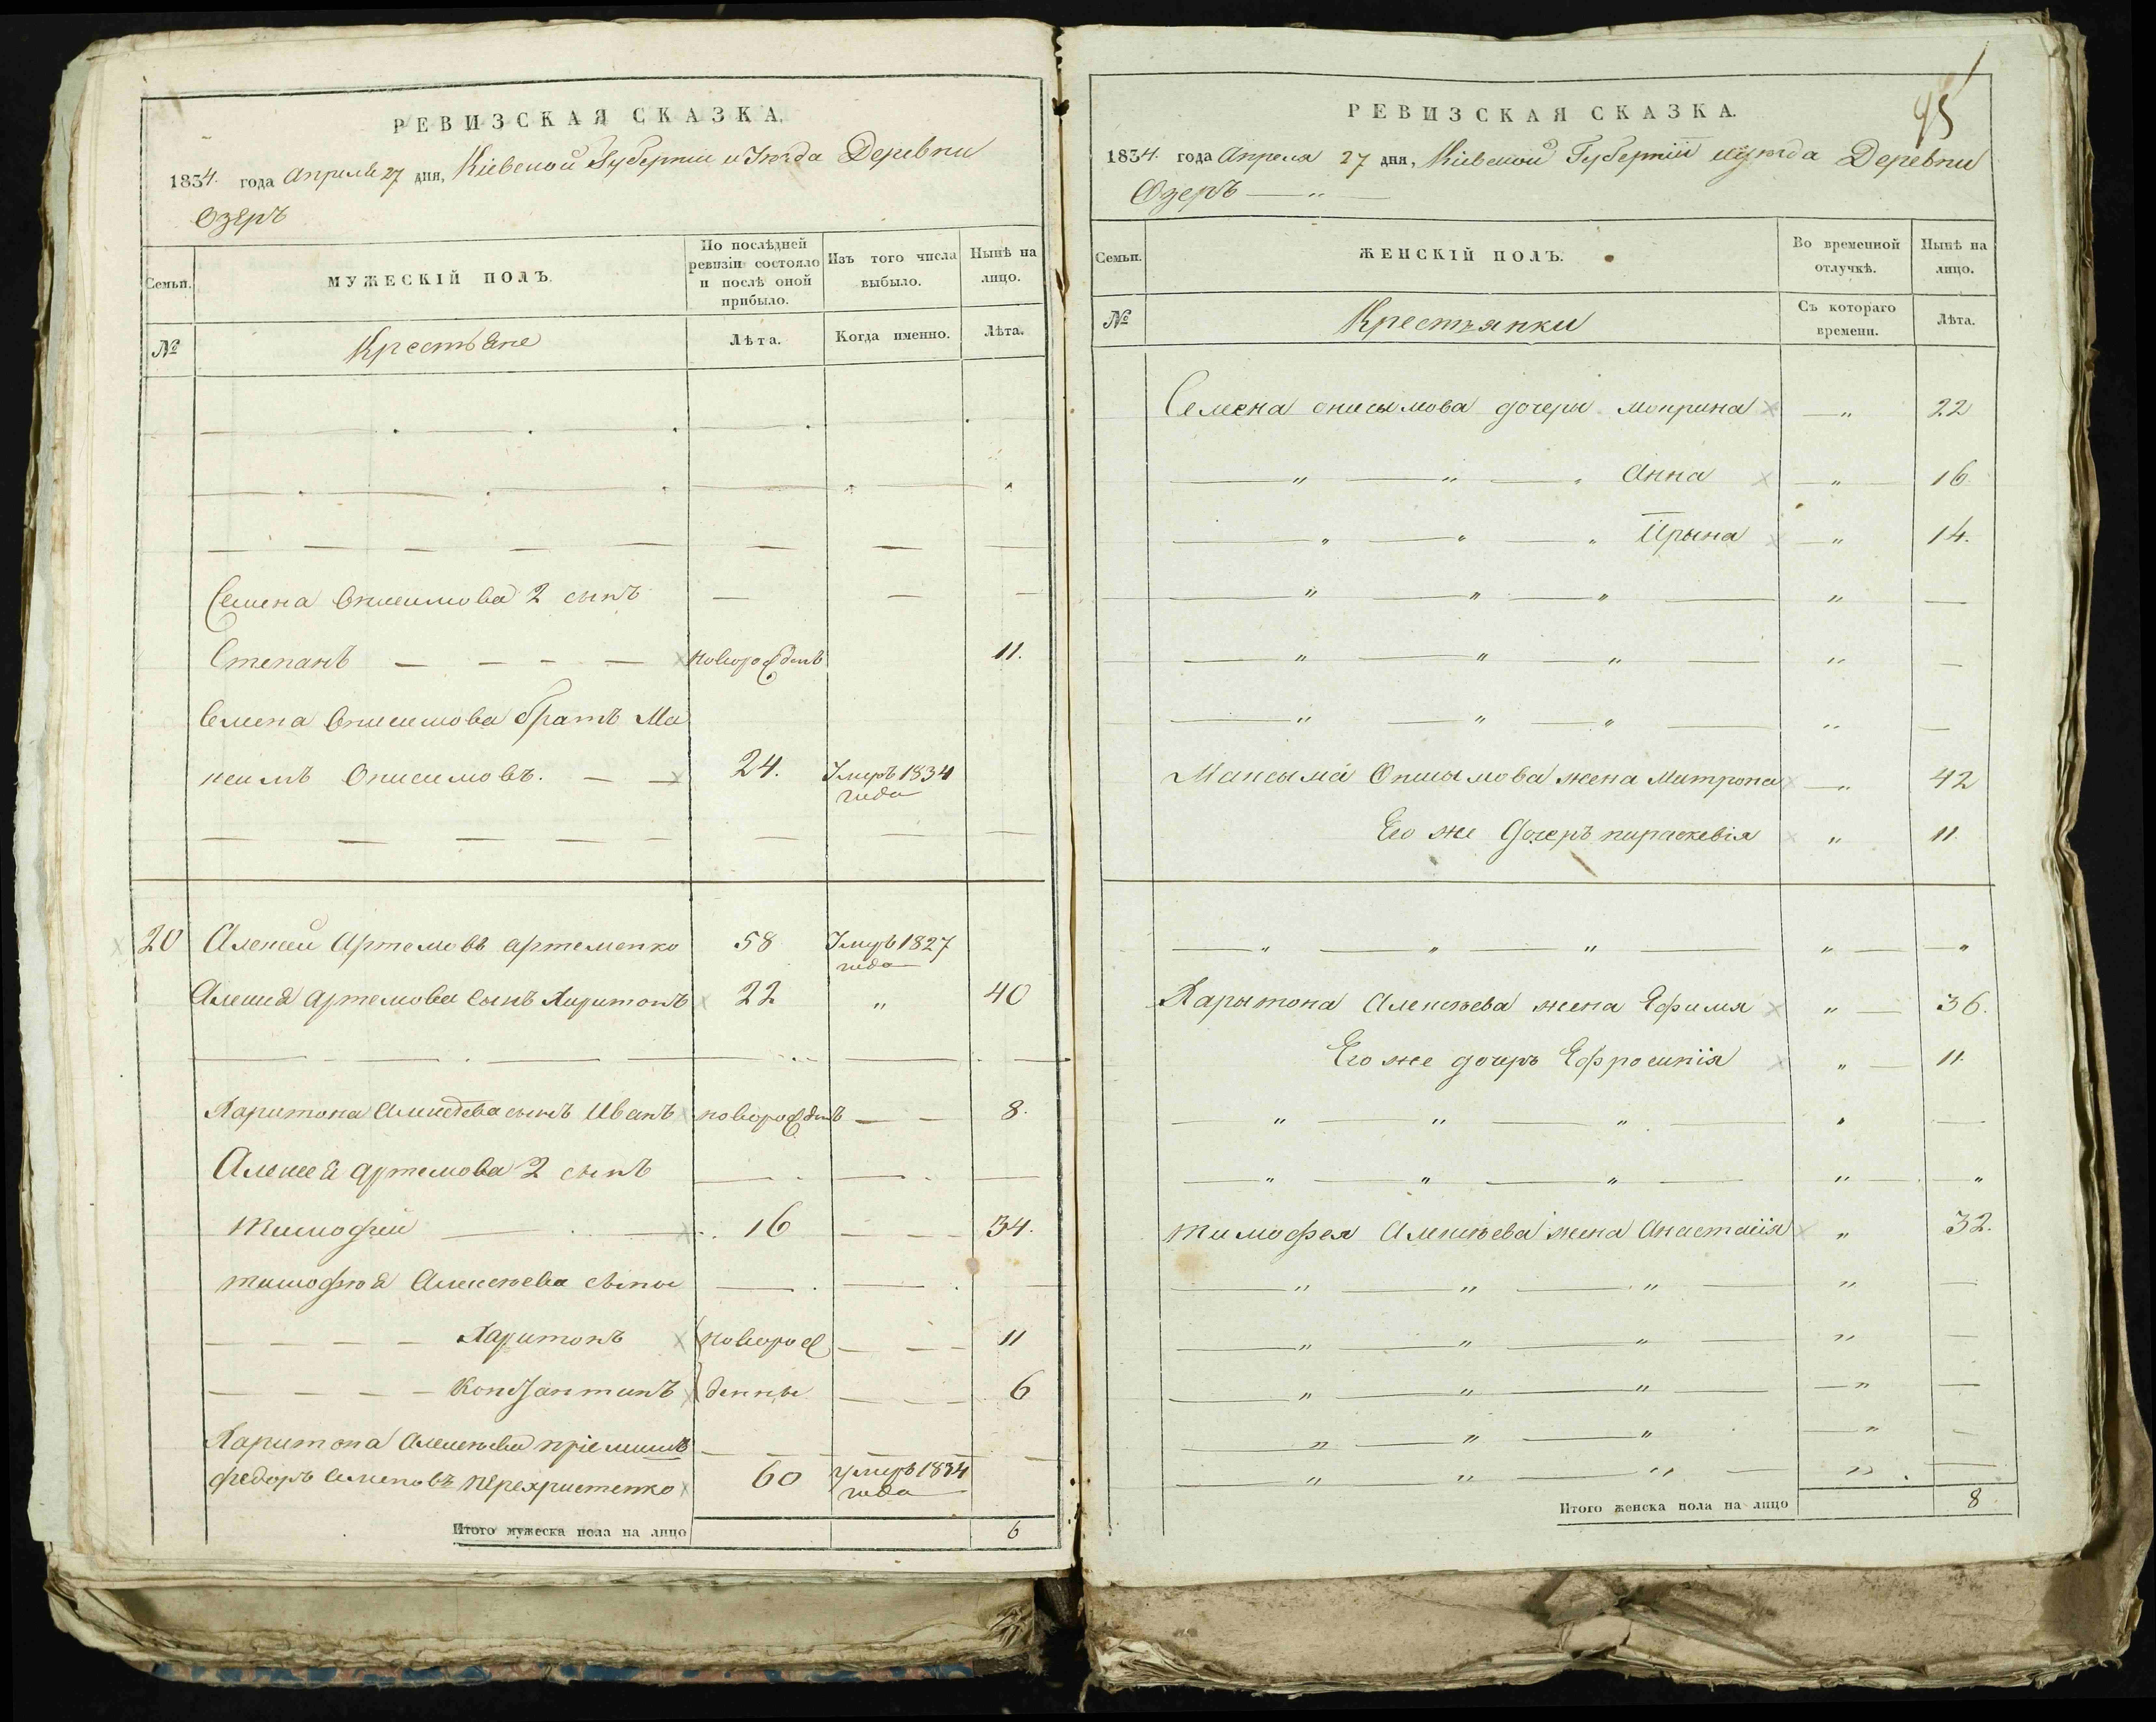 РЕВИЗСКАЯ СКАЗКА.
1834. года Апреля 27 дня, Кіевской Губерніи и Уезда Деревни
Озеръ
Семьи.
МУЖЕСКІЙ ПОЛЪ.
По послѣдней ревизіи состояло и послѣ оной прибыло.
Изъ того числа выбыло.
Нынѣ на лицо.
№
Крестьяне
Лѣта.
Когда именно.
Лѣта.
Семена Онисимова 2 сынъ
Степанъ новорожденъ 11.
Семена Онисимова братъ Ма
ксимъ Онисимовъ. 24. Умеръ 1834
года
20 Алексей Артемовъ Артеменко 58 Умеръ 1827
года
Алексея Артемова сынъ Харитонъ 22 " 40
Харитона Алексеева сынъ Иванъ новорожденъ 8.
Алексея Артемова 2 сынъ
Тимофей 16 34.
Тимофея Алексеева сыны
Харитонъ новорож 11
Константинъ денны 6
Харитона Алексеева пріемышъ
Федоръ Семеновъ Перехристенко 60 умеръ 1834
года
Итого мужеска пола на лицо 6
95
РЕВИЗСКАЯ СКАЗКА.
1834. года Апреля 27 дня, Кіевской Губерніи и уезда Деревни
Озеръ — " —
Семьи.
ЖЕНСКІЙ ПОЛЪ.
Во временной отлучкѣ.
Нынѣ на лицо.
№
Крестьянки
Съ котораго времени.
Лѣта.
Семена онисымова дочери мокрина — " 22
" " " Анна " 16
" " " Ирына " 14.
Максыма Онисымова жена Матрона — " 42
Его же Дочеръ параскевія " 11.
Харытона Алексеева жена Ефимя " — 36.
Его же дочеръ Ефросинія " — 11.
Тимофея Алексеева жена Анастасія " 32.
Итого женска пола на лицо 8